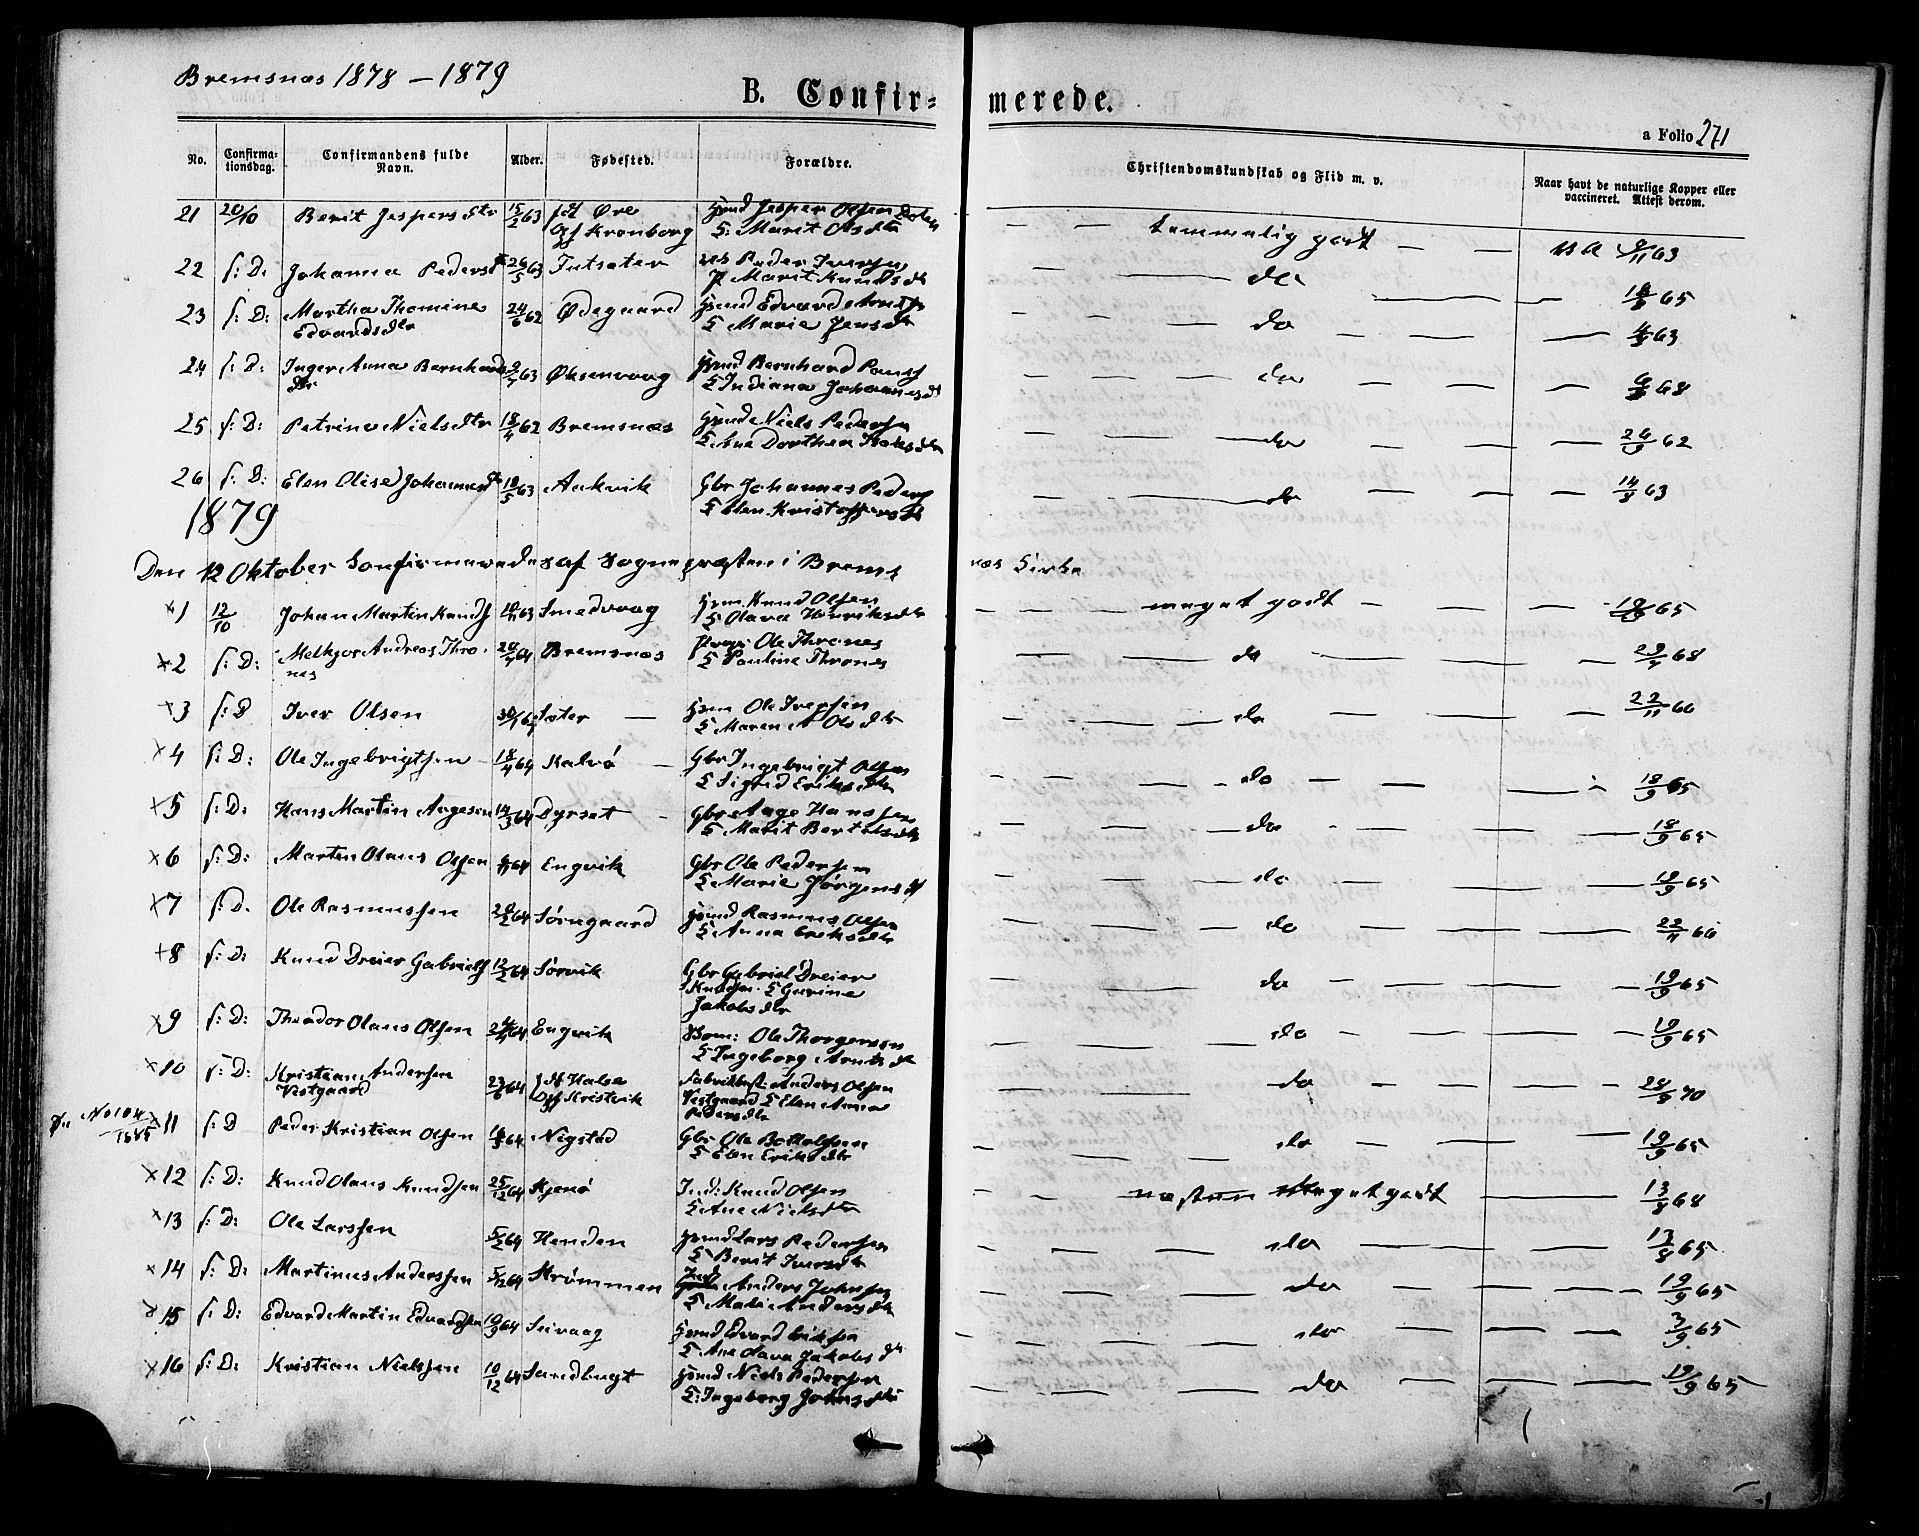 Bremsnæs 1878 – 1879
B. Confir- merede.
a Folio 271
No. Confirma- tionsdag. Confirmandens fulde Navn. Alder. Fødested. Forældre. Christendomskundskab og Flid m. v. Naar havt de naturlige Kopper eller vaccineret. Attest derom.
21 20/10 Berit Jespersdtr 15/2 63 Øre Kronborg Jesper Olsen Marit Olsdtr temmelig godt 63
22 s: D: Johanna Peders 26/5 63 Futsæter Peder Iversen Marit Knudsdtr do 65
23 s: D: Martha Thomine Edvardsdtr 24/6 62 Ødegaard Marie Jensdtr do 63
24 s: D: Inger Anna Bernhards dtr 63 Øksenvaag Bernhard Indiana Johannesdt do 68
25 s: D: Petrine Nielsdtr 18/4 62 Bremsnæs Niels Pedersen Ane Dorthea do 62
26 s: D: Elen Olise Johannesd 18/5 63 Aakvik Gbr Johannes Peders Elen Kristoffersdt do 14/9 63
1879
Den 12 Oktober Confirmeredes af Sognepræsten i Brems næs Kirke
x 1 12/10 Johan Martin Knuds 63 Smedvaag Knud Olsen Olava Henriksdtr meget godt 19/9 65
x 2 s: D: Melkjor Andreas Thro- næs 64 Bremsnæs Ole Thrones Pauline Thrones do 68
x 3 s: D Iver Olsen Sæter Ole Iversen Maren A Olsdtr do 22/11 66
x 4 s: D: Ole Ingebrigtsen 18/4 64 Kalvø Gbr Ingebrigt Olsen Sigrid Eriksdtr do 19/9 65
x 5 s: D: Hans Martin Aagesen 14/3 64 Dyrset Gbr Aage Hansen Marit do 19/9 65
x 6 s: D: Martin Olaus Olsen 64 Engvik Gbr Ole Pedersen Marie Jørgensdt do 19/9 65
x 7 s: D. Ole Rasmussen 64 Sørngaard Rasmus Olsen Anna Eriksdtr do 22/11 66
x 8 s: D: Knud Dreier Gabriels 12/2 64 Sørvik Gbr Gabriel Dreier Knudsen Gurine Jakobsdtr do 19/9 65
x 9 s: D: Theodor Olaus Olsen 64 Engvik Ole Thorgersen Ingeborg Arntsdt do 19/9 65
x 10 s: D: Kristian Andersen Vestgaard 23/6 64 Halse Kristvik Anders Olsen Vestgaard Elen Anna Pedersdtr do 70
x 11 s: D Peder Kristian Olsen 64 Nigstad Gbr Ole Elen Eriksdtr do 19/9 65
x 12 s: D: Knud Olaus Knudsen 25/12 64 Kjenø Ind: Knud Olsen Ane Nielsdtr næsten Meget godt 13/8 68
x 13 s: D: Ole Larssen 5/2 64 Henden Lars Pedersen Berit Iversdtr do 13/8 65
x 14 s: D: Martinus Anderssen 64 Strømmen Anders Johnsen Andersdtr do 19/9 65
x 15 s: D: Edvard Martin Edvardsen 64 Seivaag Edvard Eriksen Ane Olava Jakobsdt do 3/9 65
x 16 s: D: Kristian Nielsen 10/12 64 Sandbugt Niels Pedersen Ingeborg Johnsdtr do 19/9 65